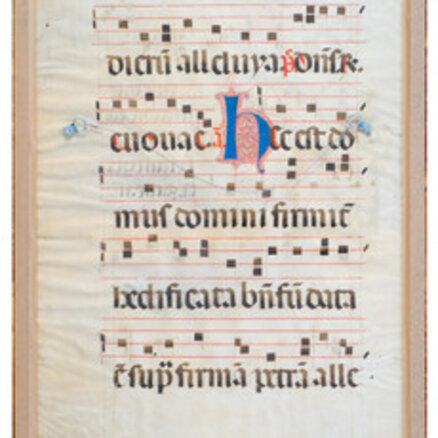 dictū alleluya p̄s dn̄s r̄.
euouae a͞ hec est do
mus domini firmit̄
hedificata bn̄ fūdata
ē sup̄ firmā petrā alle